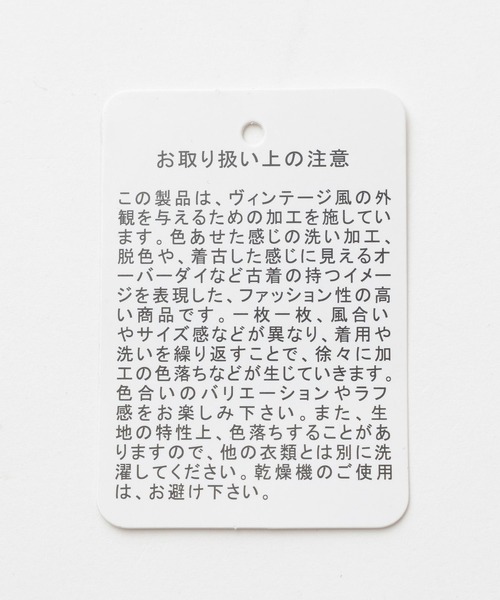 お取り扱い上の注意
この製品は、ヴィンテージ風の外
観を与えるための加工を施してい
ます。色あせた感じの洗い加工、
脱色や、着古した感じに見えるオ
ーバーダイなど古着の持つイメー
ジを表現した、ファッション性の高
い商品です。一枚一枚、風合い
やサイズ感などが異なり、着用や
洗いを繰り返すことで、徐々に加
工の色落ちなどが生じていきます。
色合いのバリエーションやラフ
感をお楽しみ下さい。また、生
地の特性上、色落ちすることがあ
りますので、他の衣類とは別に洗
濯してください。乾燥機のご使用
は、お避け下さい。